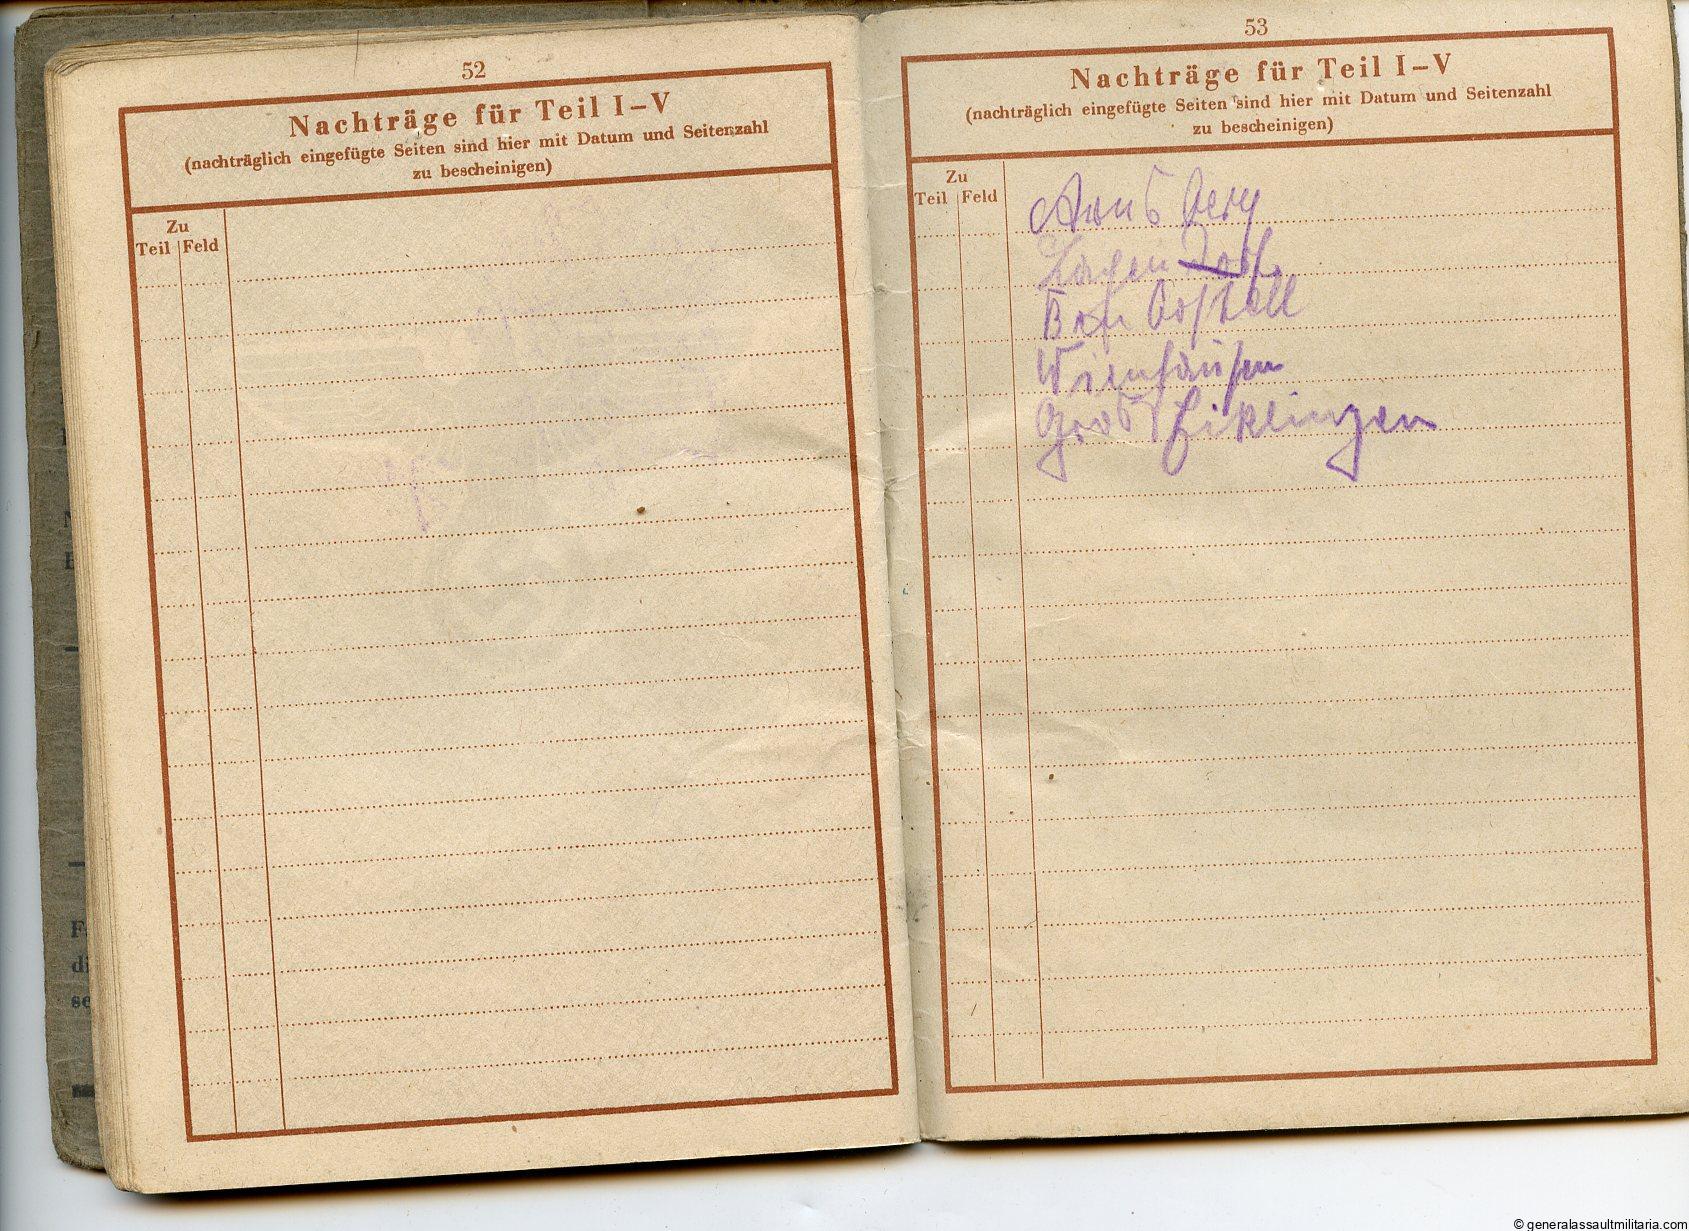 52
Nachträge für Teil I–V
(nachträglich eingefügte Seiten sind hier mit Datum und Seitenzahl
zu bescheinigen)
Zu
Teil Feld
53
Nachträge für Teil I–V
(nachträglich eingefügte Seiten sind hier mit Datum und Seitenzahl
zu bescheinigen)
Zu
Teil Feld
Wienhausen
© generalassaultmilitaria.com